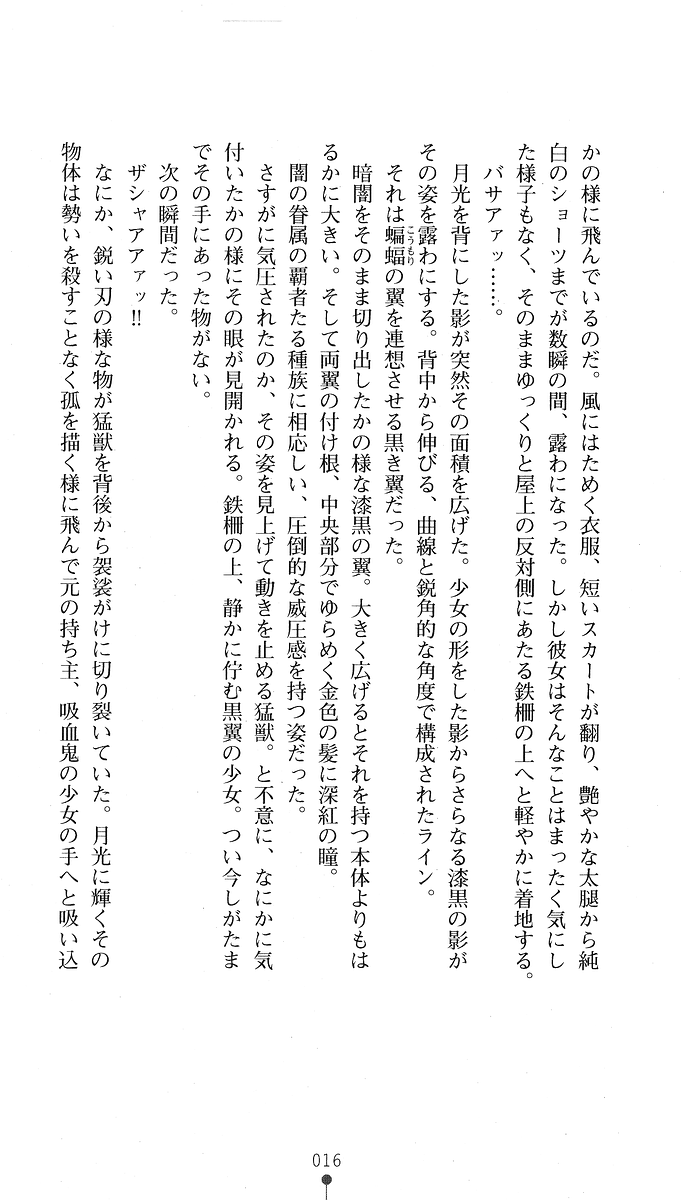 かの様に飛んでいるのだ。風にはためく衣服、短いスカートが翻り、艶やかな太腿から純
白のショーツまでが数瞬の間、露わになった。しかし彼女はそんなことはまったく気にし
た様子もなく、そのままゆっくりと屋上の反対側にあたる鉄柵の上へと軽やかに着地する。
バサアァッ……。
月光を背にした影が突然その面積を広げた。少女の形をした影からさらなる漆黒の影が
その姿を露わにする。背中から伸びる、曲線と鋭角的な角度で構成されたライン。
それは蝙蝠こうもりの翼を連想させる黒き翼だった。
暗闇をそのまま切り出したかの様な漆黒の翼。大きく広げるとそれを持つ本体よりもは
るかに大きい。そして両翼の付け根、中央部分でゆらめく金色の髪に深紅の瞳。
闇の眷属の覇者たる種族に相応しい、圧倒的な威圧感を持つ姿だった。
さすがに気圧されたのか、その姿を見上げて動きを止める猛獣。と不意に、なにかに気
付いたかの様にその眼が見開かれる。鉄柵の上、静かに佇む黒翼の少女。つい今しがたま
でその手にあった物がない。
次の瞬間だった。
ザシャアアァッ!!
なにか、鋭い刃の様な物が猛獣を背後から袈裟がけに切り裂いていた。月光に輝くその
物体は勢いを殺すことなく孤を描く様に飛んで元の持ち主、吸血鬼の少女の手へと吸い込
016